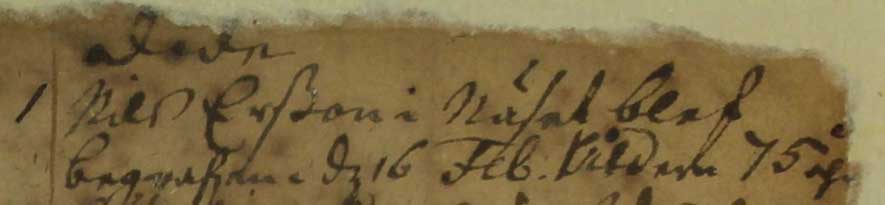 Döde
1 Nils Erßon i Näset blef
begrafven d 16 Feb. Åldern 75 åhr